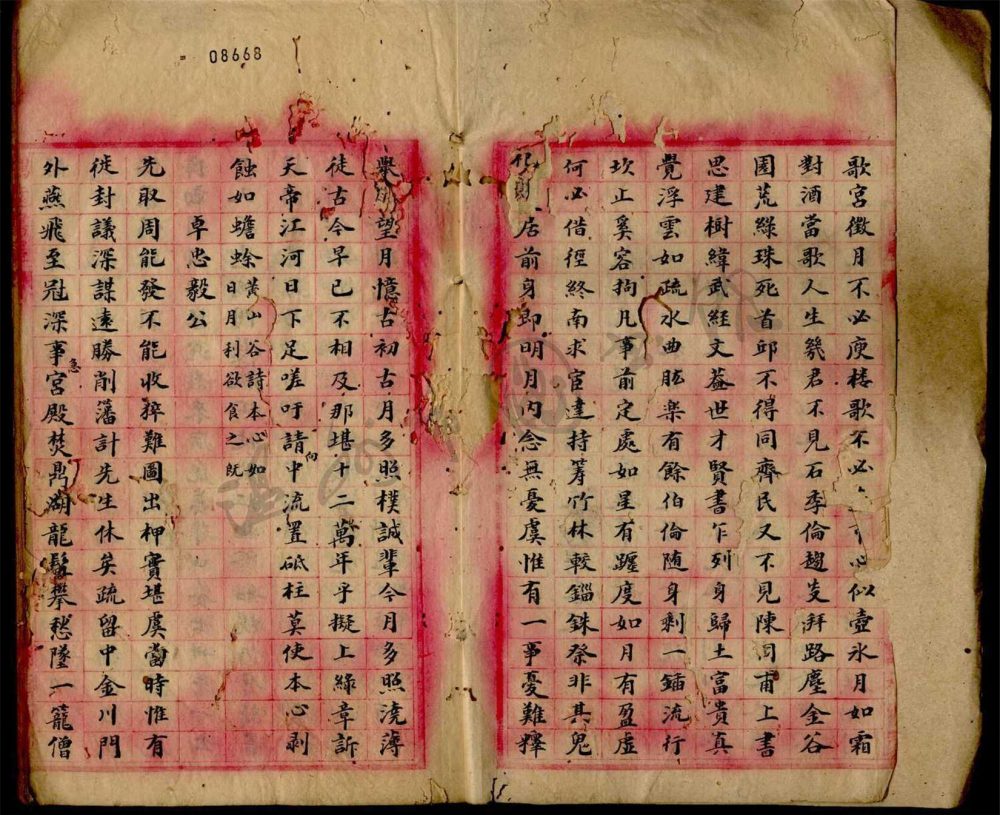 08668
歌宮徵月不必庾樓歌不必心似壺氷月如霜
對酒當歌人生幾君不見石季倫趨炎拜路塵金谷
園荒綠珠死首邱不得同齊民又不見陳同甫上書
思建樹緯武經文葢世才賢書乍列身歸土富貴真
覺浮雲如疏水曲肱樂有餘伯倫随身剩一鍤流行
坎止奚容拘凡事前定處如星有躔度如月有盈虛
何必借徑終南求宦達持籌竹林較錙銖祭非其鬼
居前身即明月內念無憂虞惟有一事憂難釋
舉頭望月憶古初古月多照樸誠輩今月多照澆薄
徒古今早已不相及那堪十二萬年乎擬上綠章訴
天帝江河日下足嗟吁請向中流置砥柱莫使本心剥
蝕如蟾蜍黃山谷詩本心如日月利欲食之既
卓忠毅公
先取周能發不能收猝難圖出柙實堪虞當時惟有
徙封議深謀遠勝削藩計先生休矣疏留中金川門
外燕飛至冦深事急宮殿焚鼎湖龍鬚攀愁墜一籠僧